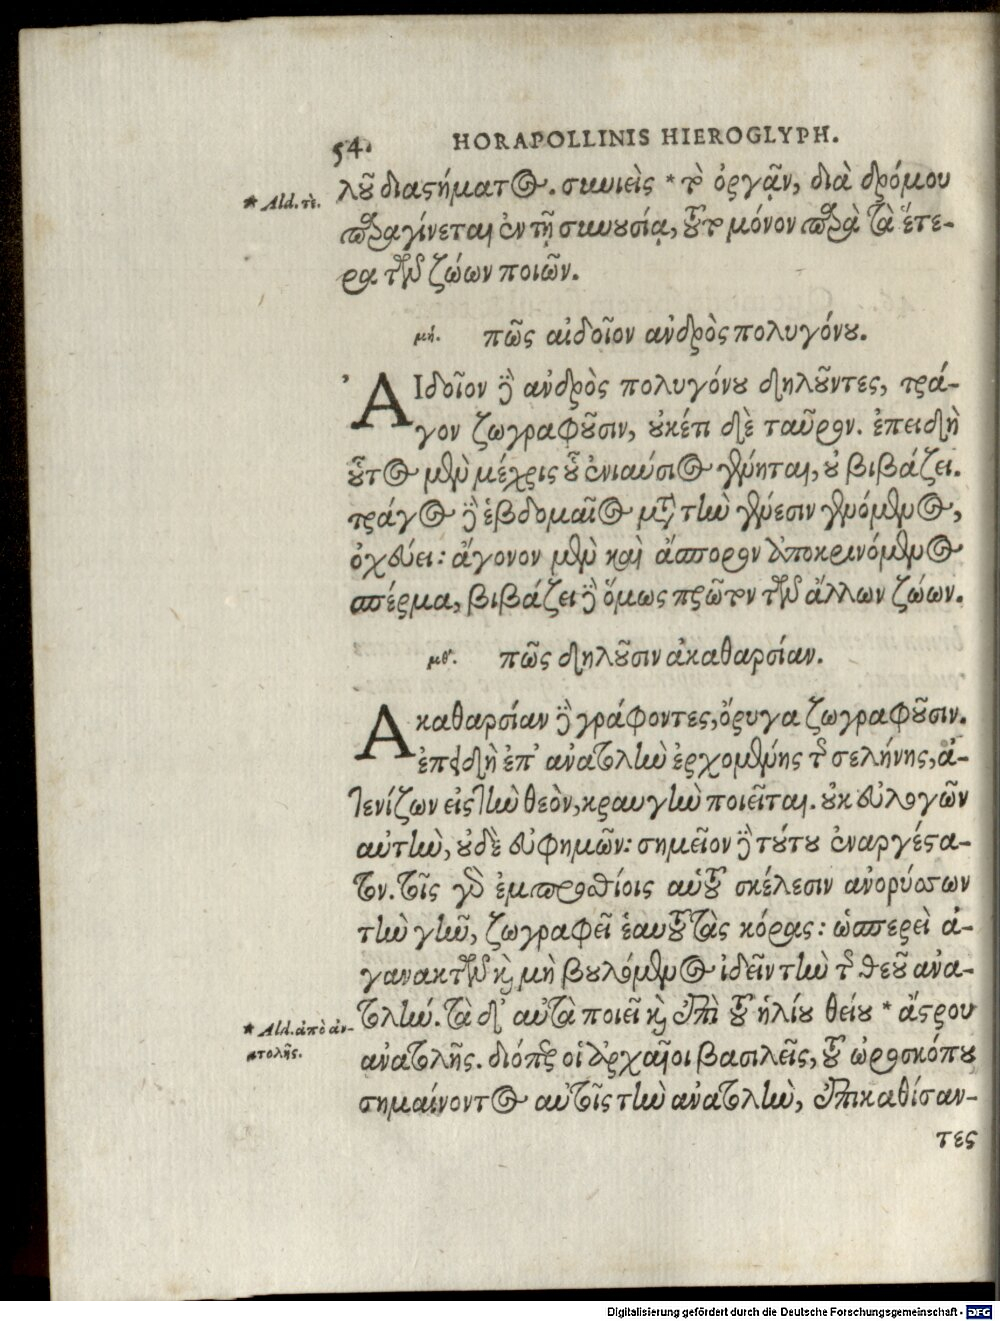 54. HORAPOLLINIS HIEROGLYPH.
λοῦ διαστήματος. συνιεὶς * τὸ ὀργᾷν, διὰ δρόμου
* Ald. τὲ.
παραγίνεται ἐν τῇ συνουσίᾳ, τοῦτο μόνον παρὰ τὰ ἕτε-
ρα τῶν ζώων ποιῶν.
μή. πῶς αἰδοῖον ἀνδρὸς πολυγόνου.
ΑΙδοῖον δὲ ἀνδρὸς πολυγόνου δηλοῦντες, τρά-
γον ζωγραφοῦσιν, οὐκέτι δὲ ταῦρον. ἐπειδὴ
οὗτος μὲν μέχρις οὗ ἐνιαύσιος γένηται, οὐ βιβάζει.
τράγος δὲ ἑβδομαῖος μετὰ τὴν γένεσιν γενόμενος,
ὀχεύει: ἄγονον μὲν καὶ ἄσπορον ἀποκρινόμενος
σπέρμα, βιβάζει δὲ ὅμως πρῶτον τῶν ἄλλων ζώων.
μθ'. πῶς δηλοῦσιν ἀκαθαρσίαν.
Ακαθαρσίαν δὲ γράφοντες, ὄρυγα ζωγραφοῦσιν.
ἐπειδὴ ἐπ' ἀνατολὴν ἐρχομένης τῆς σελήνης, ἀ-
τενίζων εἰς τὴν θεὸν, κραυγὴν ποιεῖται. οὐκ εὐλογῶν
αὐτὴν, οὐδὲ εὐφημῶν: σημεῖον δὲ τούτου ἐναργέστα-
τον. τοῖς γὰρ ἐμπροσθίοις αὐτοῦ σκέλεσιν ἀνορύσσων
τὴν γῆν, ζωγραφεῖ ἑαυτοῦ τὰς κόρας: ὡσπερεὶ ἀ-
γανακτῶν καὶ μὴ βουλόμενος ἰδεῖν τὴν τῆς θεοῦ ἀνα-
τολήν. τὰ δ' αὐτὰ ποιεῖ καὶ ἐπὶ τοῦ ἡλίου θείου * ἄστρου
* Ald. ἀπὸ ἀν-
ατολῆς.
ἀνατολῆς. διόπερ οἱ ἀρχαῖοι βασιλεῖς, τοῦ ὡροσκόπου
σημαίνοντος αὐτοῖς τὴν ἀνατολὴν, ἐπικαθίσαν-
τες
Digitalisierung gefördert durch die Deutsche Forschungsgemeinschaft - DFG